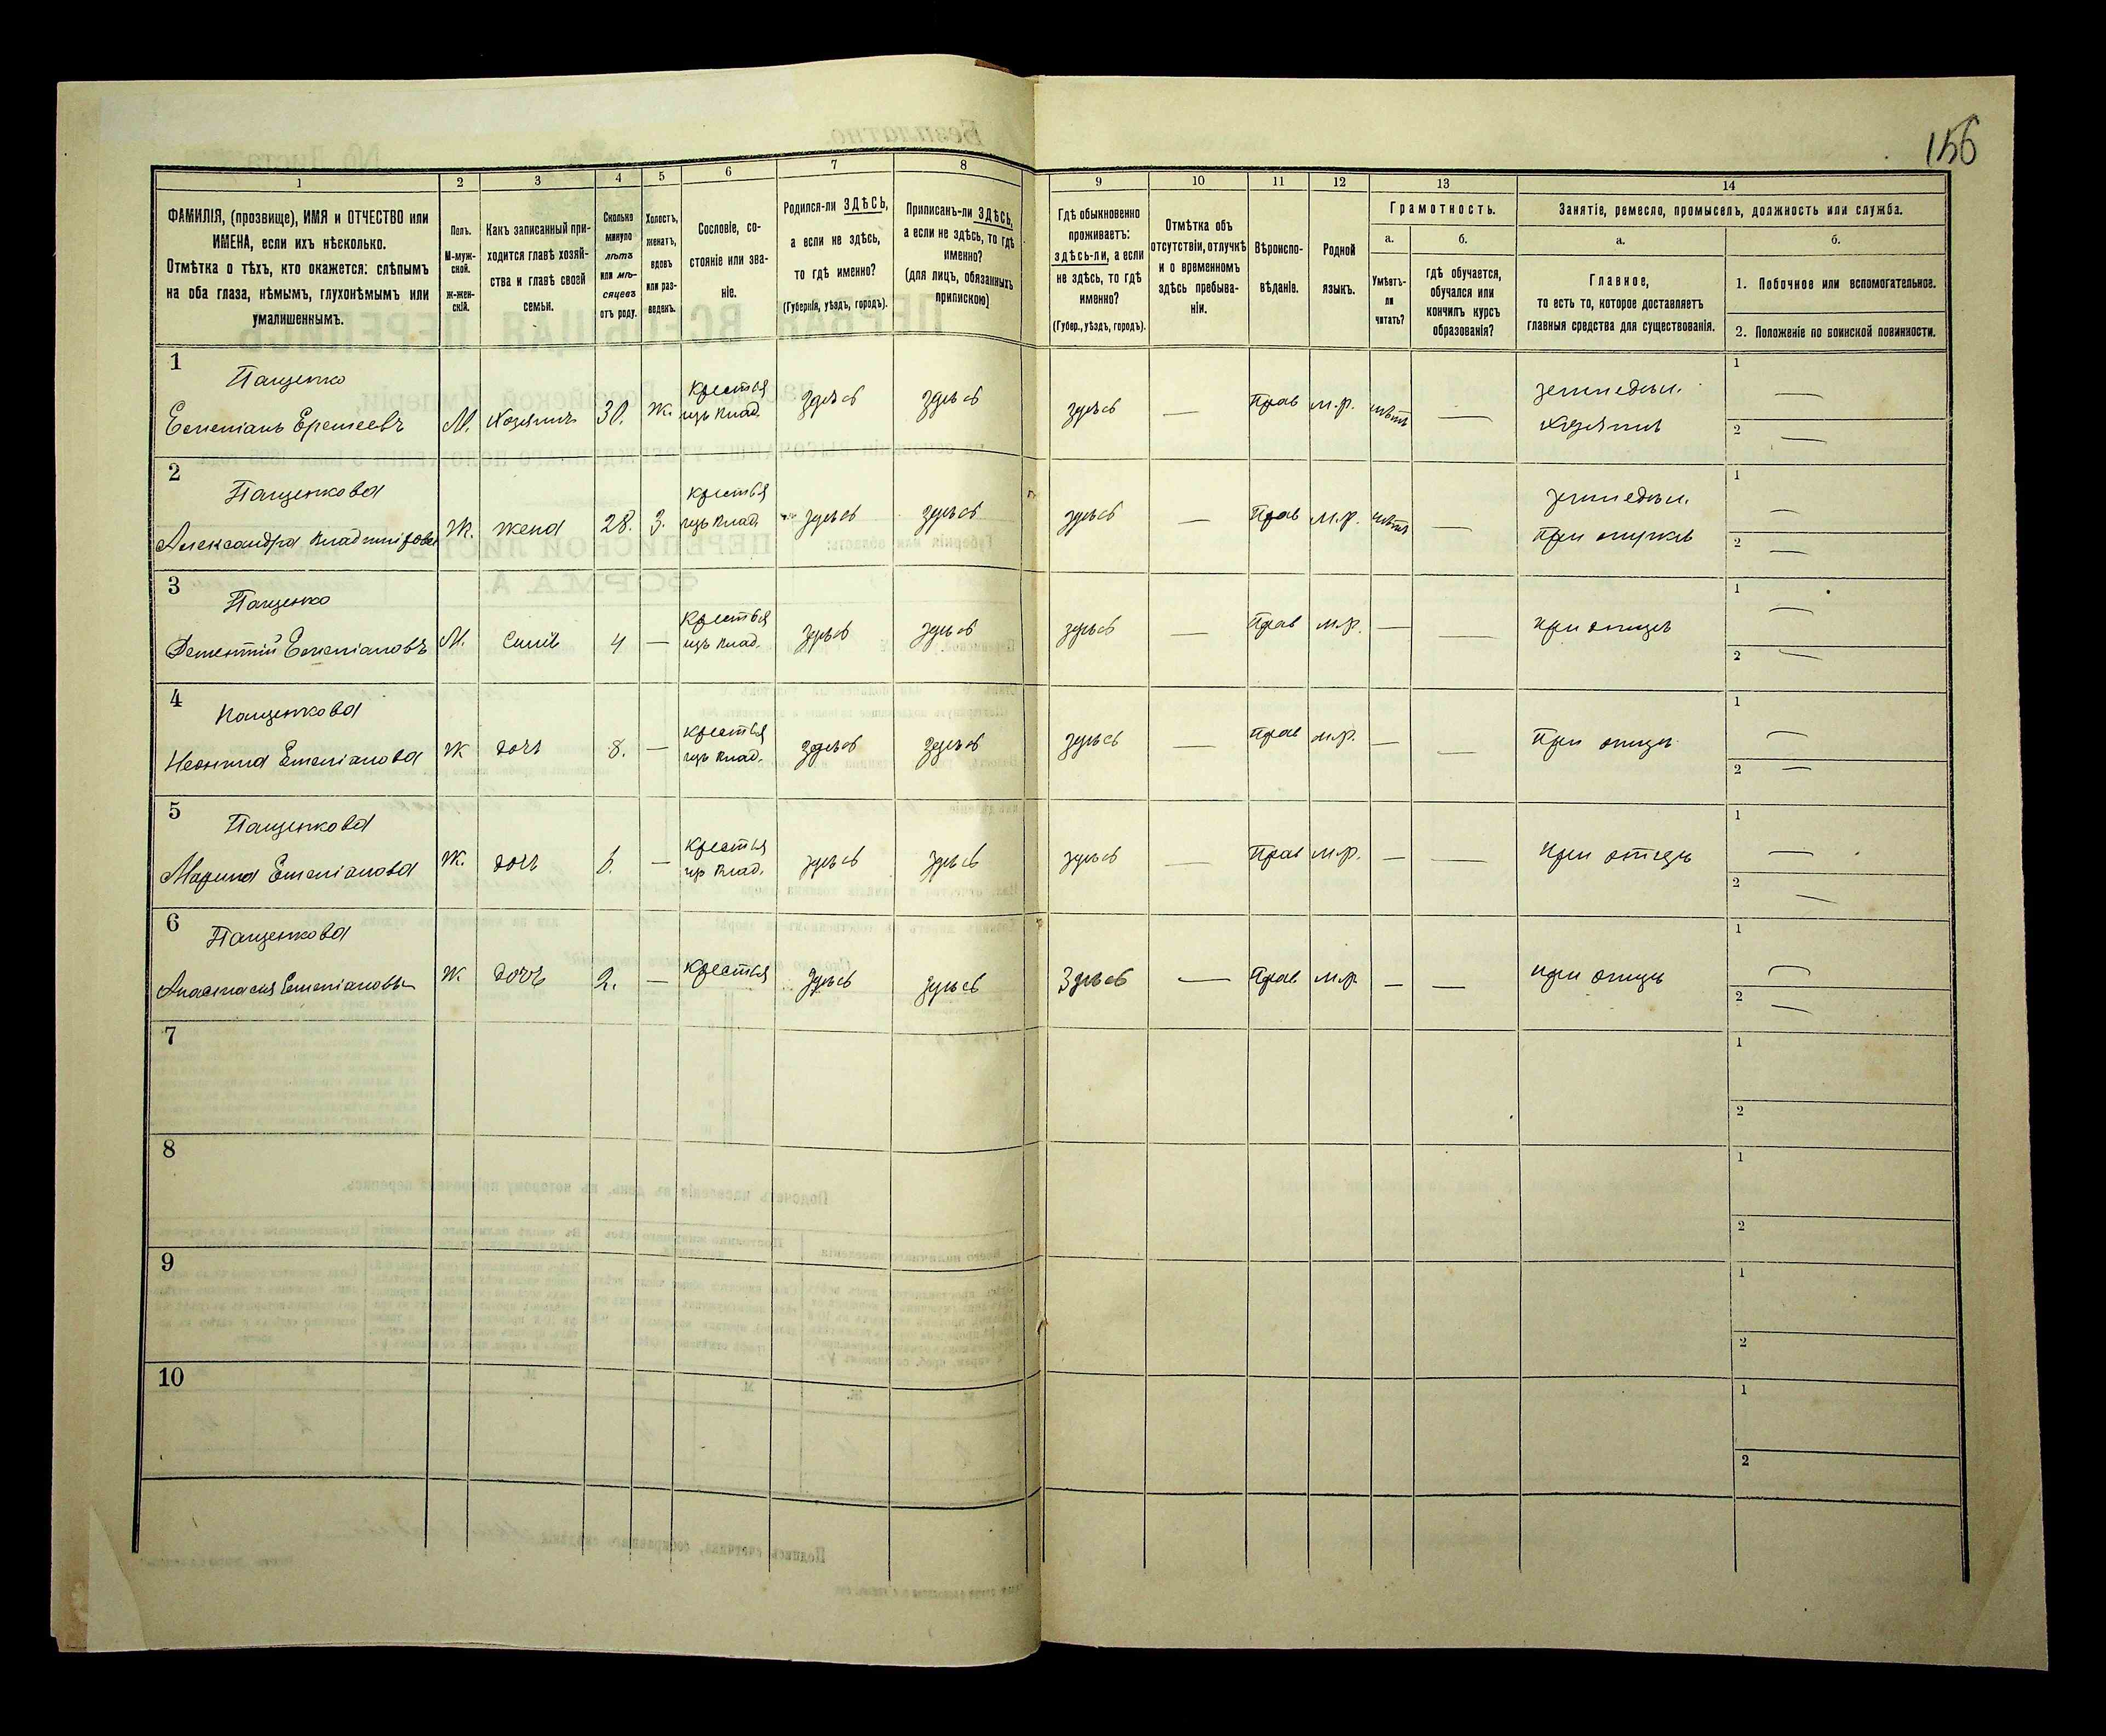 156
1
2
3
4
5
6
7
8
9
10
11
12
13
14
ФАМИЛІЯ, (прозвище), ИМЯ и ОТЧЕСТВО или
ИМЕНА, если ихъ нѣсколько.
Отмѣтка о тѣхъ, кто окажется: слѣпымъ
на оба глаза, нѣмымъ, глухонѣмымъ или
умалишеннымъ.
Полъ.
М-муж-
ской.
Ж-жен-
скій.
Какъ записанный при-
ходится главѣ хозяй-
ства и главѣ своей
семьи.
Сколько
минуло
лѣтъ
или мѣ-
сяцевъ
отъ роду.
Холостъ,
женатъ,
вдовъ
или раз-
веденъ.
Сословіе, со-
стояніе или зва-
ніе.
Родился-ли ЗДѢСЬ,
а если не здѣсь,
то гдѣ именно?
(Губернія, уѣздъ, городъ).
Приписанъ-ли ЗДѢСЬ,
а если не здѣсь, то гдѣ
именно?
(для лицъ, обязанныхъ
припискою)
Гдѣ обыкновенно
проживаетъ:
здѣсь-ли, а если
не здѣсь, то гдѣ
именно?
(Губер., уѣздъ, городъ).
Отмѣтка объ
отсутствіи, отлучкѣ
и о временномъ
здѣсь пребыва-
ніи.
Вѣроиспо-
вѣданіе.
Родной
языкъ.
Грамотность.
а.
Умѣетъ-
ли
читать?
б.
гдѣ обучается,
обучался или
кончилъ курсъ
образованія?
Занятіе, ремесло, промыселъ, должность или служба.
а.
Главное,
то есть то, которое доставляетъ
главныя средства для существованія.
б.
1. Побочное или вспомогательное.
2. Положеніе по воинской повинности.
1
Пащенко
Емельянъ Еремеевъ
М. Хозяинъ 30. Ж.
Крестья
изъ влад.
здѣсь здѣсь здѣсь — Прав м.р. нѣтъ —
земледѣл.
Хозяинъ
1 —
2 —
2
Пащенкова
Александра Владимірова
Ж. жена 28. З.
Крестья
изъ влад.
здѣсь здѣсь здѣсь — Прав м.р. нѣтъ —
земледѣл.
при мужѣ
1 —
2 —
3
Пащенко
Дементій Емельяновъ
М. Сынъ 4 —
Крестья
изъ влад.
здѣсь здѣсь здѣсь — Прав м.р. — —
при отцѣ
1 —
2 —
4
Пащенкова
Неонила Емельянова
Ж дочь 8. —
Крестья
изъ влад.
здѣсь здѣсь здѣсь — Прав м.р. — —
При отцѣ
1 —
2 —
5
Пащенкова
Марина Емельянова
Ж. дочь 6. —
Крестья
из влад.
здѣсь здѣсь здѣсь — Прав м.р. — —
при отцѣ
1 —
2 —
6
Пащенкова
Анастасия Емельянова
Ж. дочь 2. — Крестья здѣсь здѣсь Здѣсь — Прав м.р. — —
при отцѣ
1 —
2 —
7
1
2
8
1
2
9
1
2
10
1
2